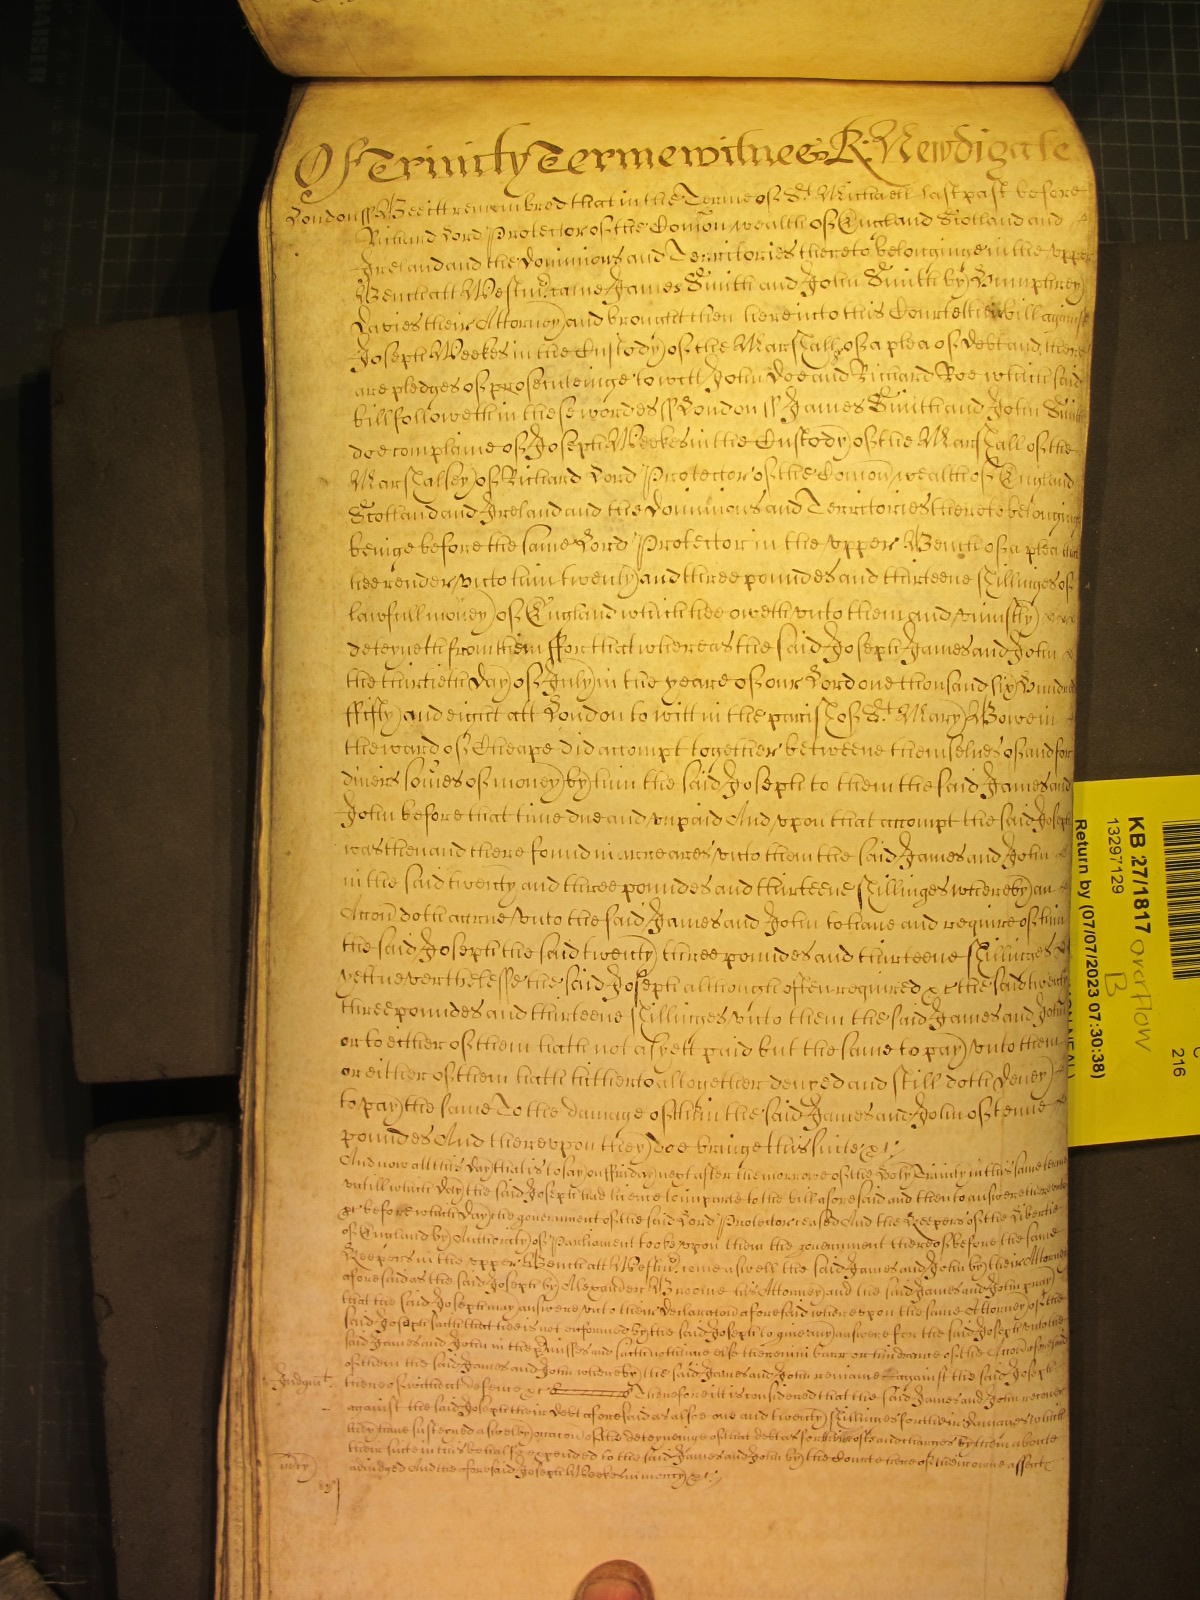 Of Trinity Terme witnes R: Newdigate
London ss Bee itt remembred that in the Terme of St. Michaell last past before
Richard Lord Protector of the Comon wealth of England Scotland and
Ireland and the Dominions and Territories thereto belonginge in the vpper
Bench att Westmr. came James Smith and John Smith by Humphrey
Davies their Attorney and brought then here into this Court their bill against
Joseph Weekes in the Custody of the Marshall &c of a plea of Debt and there
are pledges of prosecuteinge to witt John Doe and Richard Roe which said
bill followeth in these wordes ss London ss James Smith and John Smith
doe complaine of Joseph Weekes in the Custody of the Marshall of the
Marshalsey of Richard Lord Protector of the Comon wealth of England
Scotland and Ireland and the Dominions and Territories thereto belonginge
beinge before the same Lord Protector in the vpper Bench of a plea that
hee render vnto them twenty and three poundes and thirteene shillinges of
lawfull money of England which hee oweth vnto them and vniustly
deteyneth from them ffor that whereas the said Joseph James and John
the thirtieth day of July in the yeare of our Lord one thousand six hundred
ffifty and eight att London to witt in the parish of St. Mary Bowe in
the ward of Cheape did accompt together betweene themselues of and for
divers somes of money by him the said Joseph to them the said James and
John before that time due and vnpaid And vpon that accompt the said Joseph
was then and there found in arreares vnto them the said James and John
in the said twenty and three poundes and thirteene shillinges whereby an
Accon doth accrue vnto the said James and John to haue and require of him
the said Joseph the said twenty three poundes and thirteene shillinges
yett neverthelesse the said Joseph although often required &c the said twenty
three poundes and thirteene shillinges vnto them the said James and John
or to either of them hath not as yett paid but the same to pay vnto them
or either of them hath hitherto altogether denyed and still doth deney
to pay the same To the damage of them the said James and John of tenne
poundes And therevpon they doe bringe this suite &c:
And now att this day that is to say on ffriday next after the morrow of the Holy Trinity in this same terme
vntill which day the said Joseph had licence to imparle to the bill aforesaid and then to answere
&c before which day the government of the said Lord Protector ceased And the Keepers of the Libertie
of England by Authority of Parliament tooke vpon them the gouernment thereof before the same
Keepers in the vpper Bench att Westmr. come aswell the said James and John by their Attorney
aforesaid as the said Joseph by Alexander Broome his Attorney and the said James and John pray
that the said Joseph may answere vnto their declaration aforesaid wherevpon the same Attorney of the
said Joseph saith that hee is not enformed by the said Joseph to giue any answere for the said Joseph vnto the
said James and John in the premisses and saith nothinge else therein in barr or hindrance of the Accon aforesaid
of them the said James and John whereby the said James and John remaine against the said Joseph
Judgmt. thereof without defence &c Therefore itt is considered that the said James and John recover
against the said Joseph their debt aforesaid as alsoe one and twenty shillinges for their damages which
they haue susteyned aswell by occasion of the deteyneinge of that debt as for their costs and charges by them aboute
their suite in this behalfe expended to the said James and John by the Courte here of their owne assent
mrcy adiudged And the aforesaid Joseph Weekes in mercy &c:
KB 27/1817 overflow
B
13297129
Return by (07/07/2023 07:30:38)
216